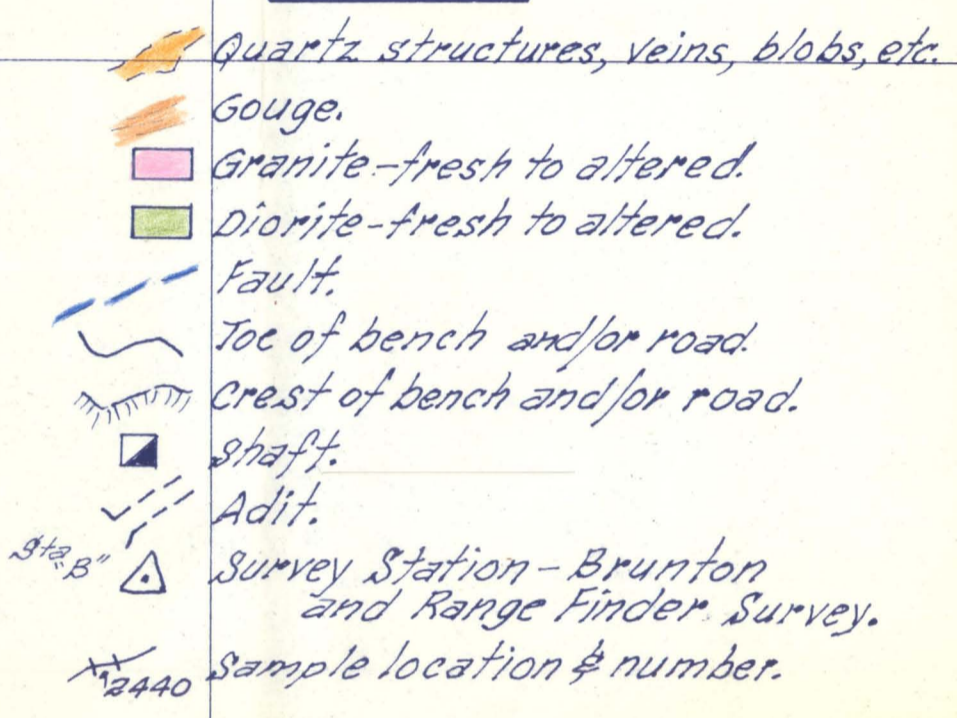 Quartz structures, veins, blobs, etc.
Gouge.
Granite-fresh to altered.
Diorite-fresh to altered.
Fault.
Toe of bench and/or road.
Crest of bench and/or road.
Shaft.
Adit.
Sta "B" Survey Station - Brunton
and Range Finder Survey.
2440 Sample location & number.